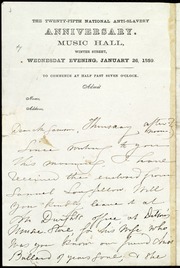 THE TWENTY-FIFTH NATIONAL ANTI-SLAVERY
ANNIVERSARY.
MUSIC HALL,
WINTER STREET,
WEDNESDAY EVENING, JANUARY 26, 1859.
TO COMMENCE AT HALF PAST SEVEN O'CLOCK.
Admit
From
Address
Dear Mr Thursday after
Since writing to you
this morning I have
received the enclosed from
Samuel Longfellow. Will
you kindly leave it at
Mr Dwight's office at
Music Store, for his Wife, who
was you know our friend
Bullard of years gone, & the